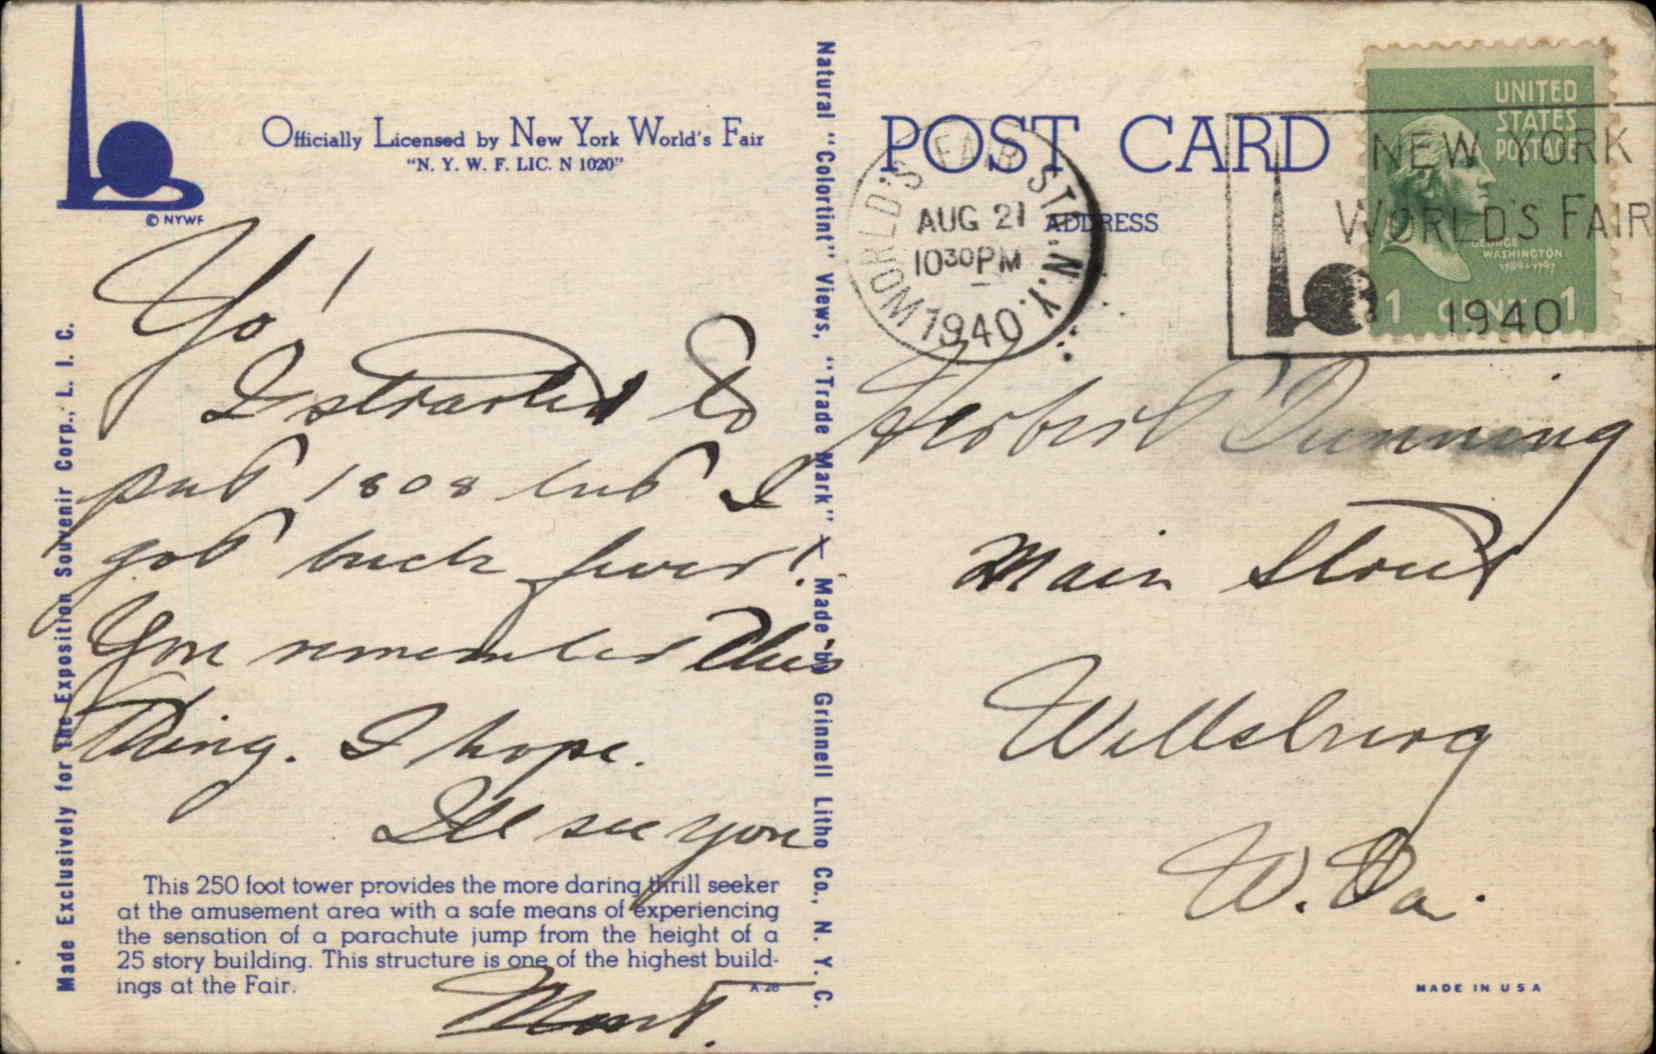 Officially Licensed by New York World's Fair
"N. Y. W. F. LIC. N 1020"
© NYWF
Yo!
I started to
put 1808 but I
got buck fever!
You remember this
thing. I hope.
I'll see you
Mort.
This 250 foot tower provides the more daring thrill seeker
at the amusement area with a safe means of experiencing
the sensation of a parachute jump from the height of a
25 story building. This structure is one of the highest build-
ings at the Fair.
A 28
Made Exclusively for the Exposition Souvenir Corp., L. I. C.
Natural "Colortint" Views, "Trade Mark" — Made by Grinnell Litho Co., N. Y. C.
POST CARD
ADDRESS
WORLD'S FAIR STA. N.Y.
AUG 21
10 30 PM
1940
NEW YORK
WORLD'S FAIR
1940
UNITED
STATES
POSTAGE
GEORGE
WASHINGTON
1789-1797
1 CENT 1
Herbert Dunning
Main Street
Wellsburg
W. Va.
MADE IN USA